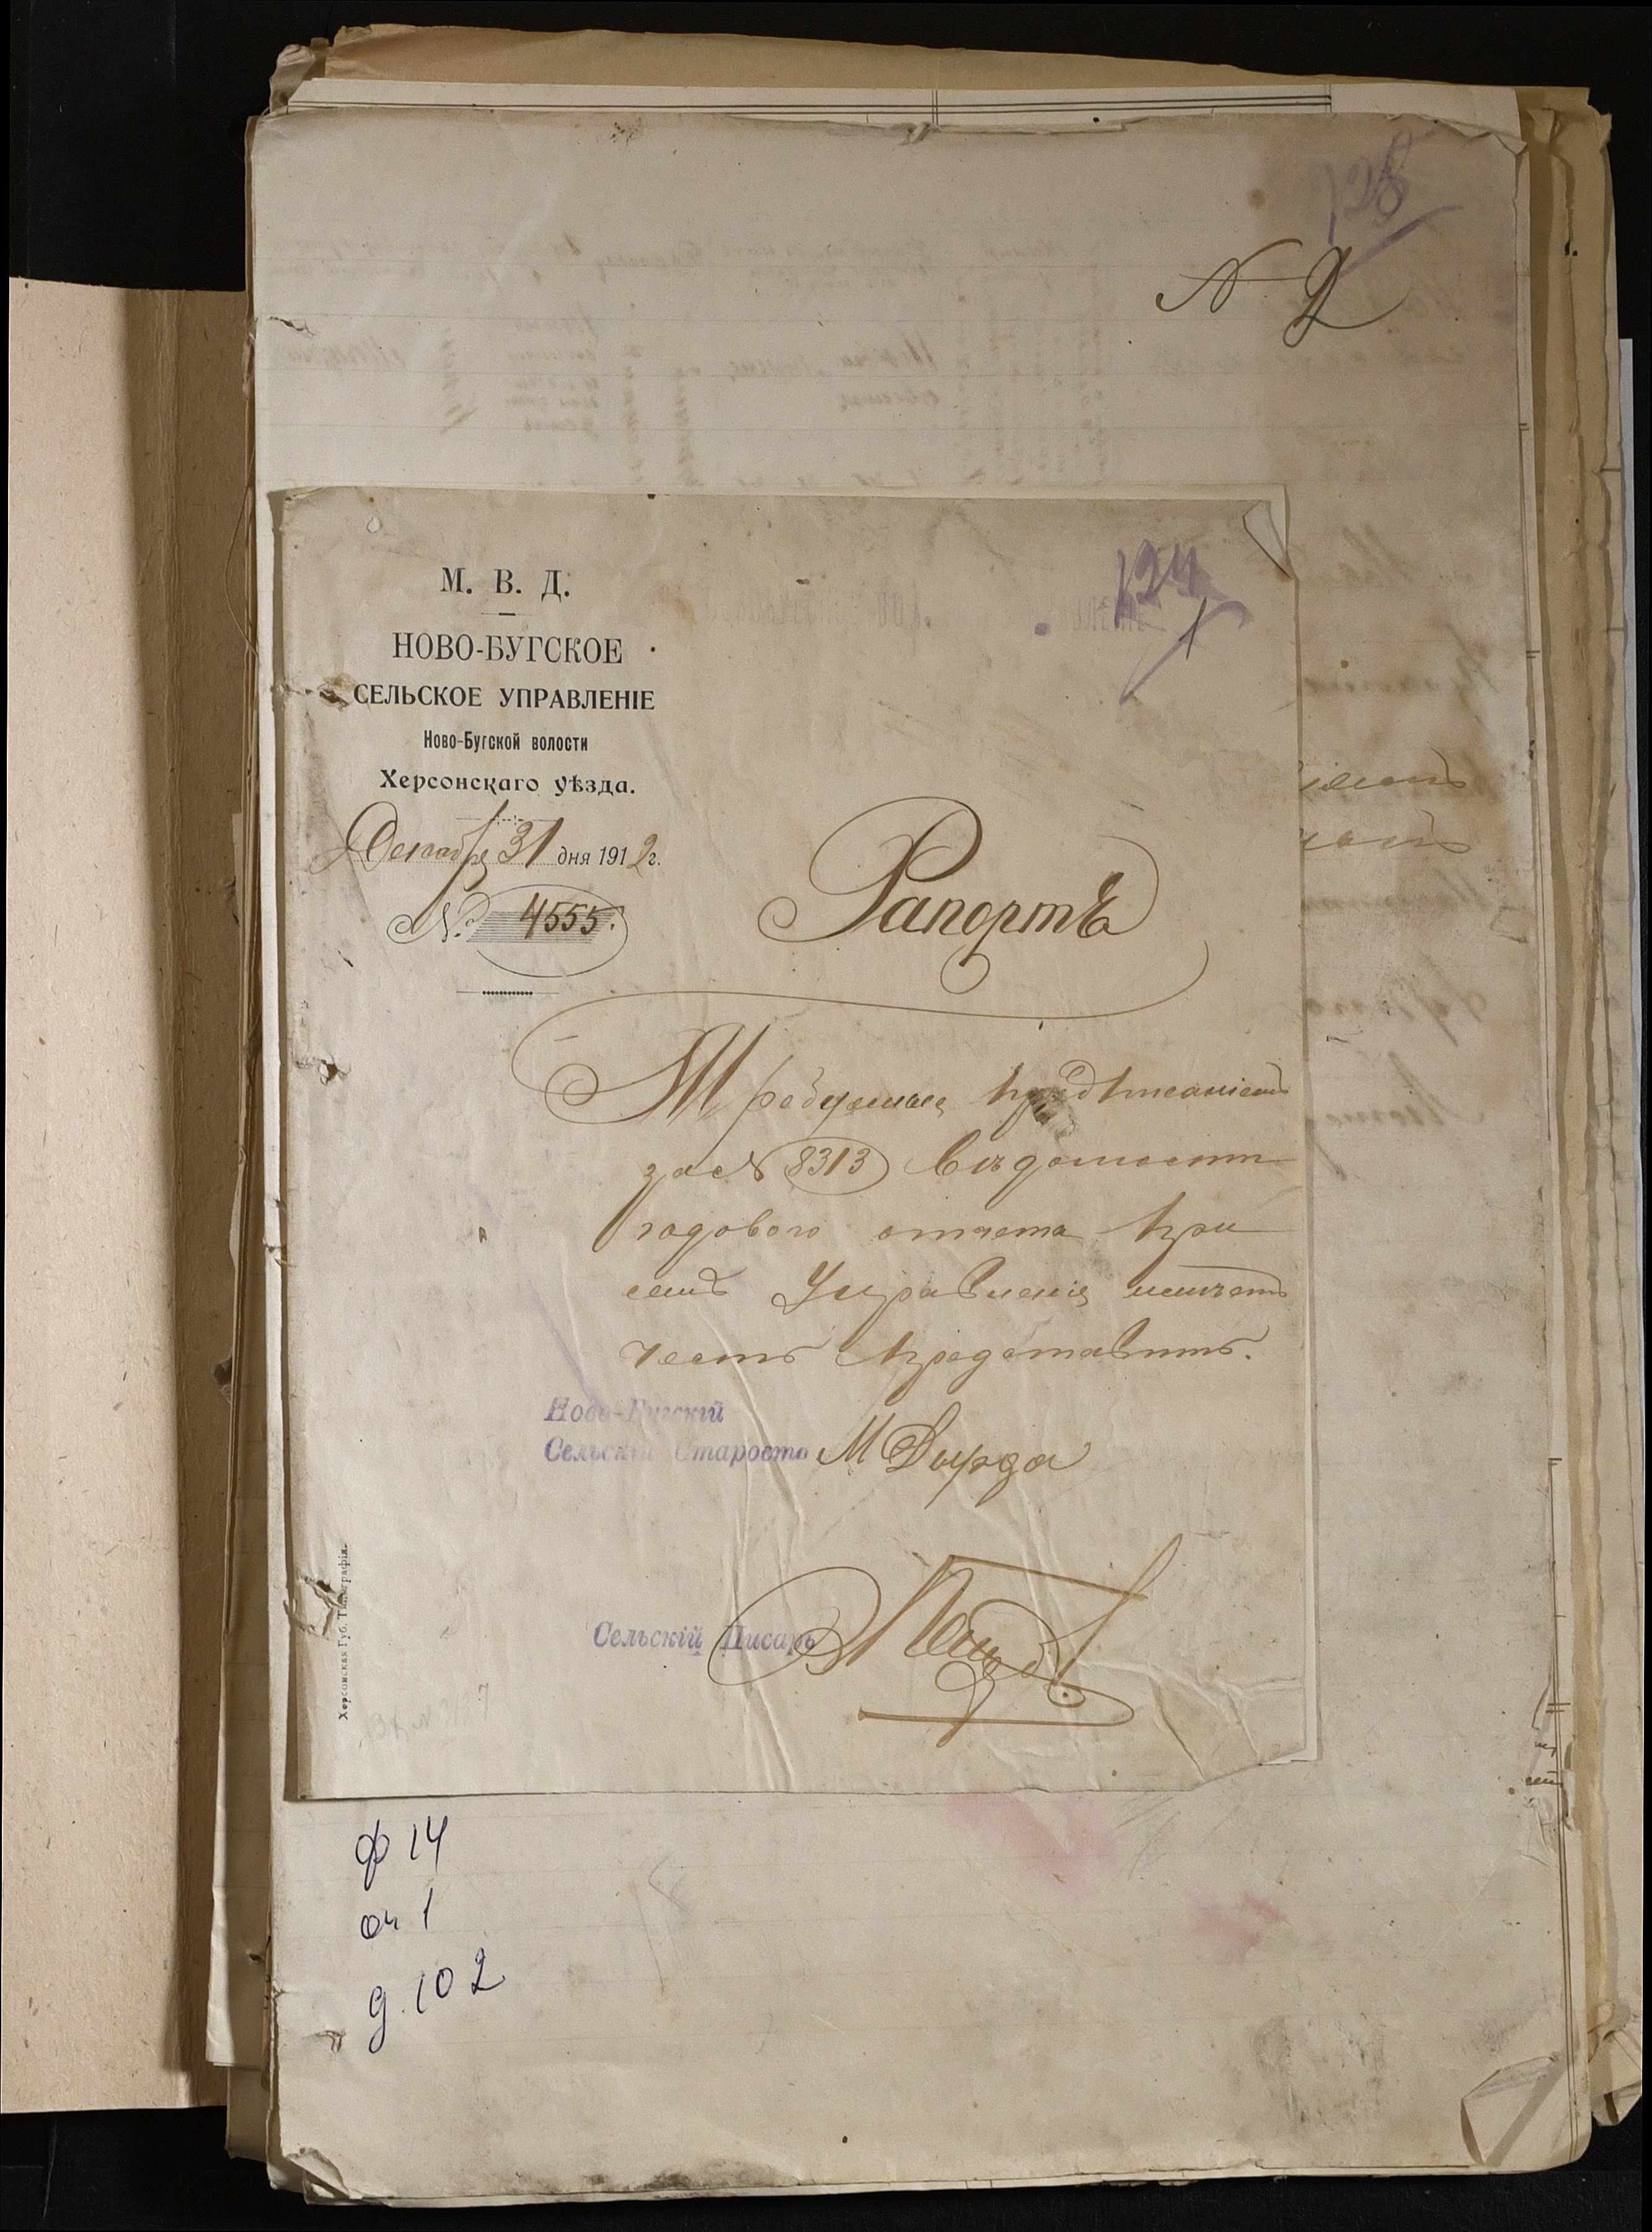 128
N 2
124
1
М. В. Д.
НОВО-БУГСКОЕ
СЕЛЬСКОЕ УПРАВЛЕНІЕ
Ново-Бугской волости
Херсонскаго уѣзда.
Декабря 31 дня 1912 г.
№ 4555.
Рапортъ
Требуемыя предписаніемъ
за № 8313 вѣдомости
годового отчета при
семъ Управленіе имѣетъ
честь представить.
Ново-Бугскій
Сельскій Староста М Дырда
Сельскій Писарь
Херсонская Губ. Типографія.
ф 14
оп 1
д. 102